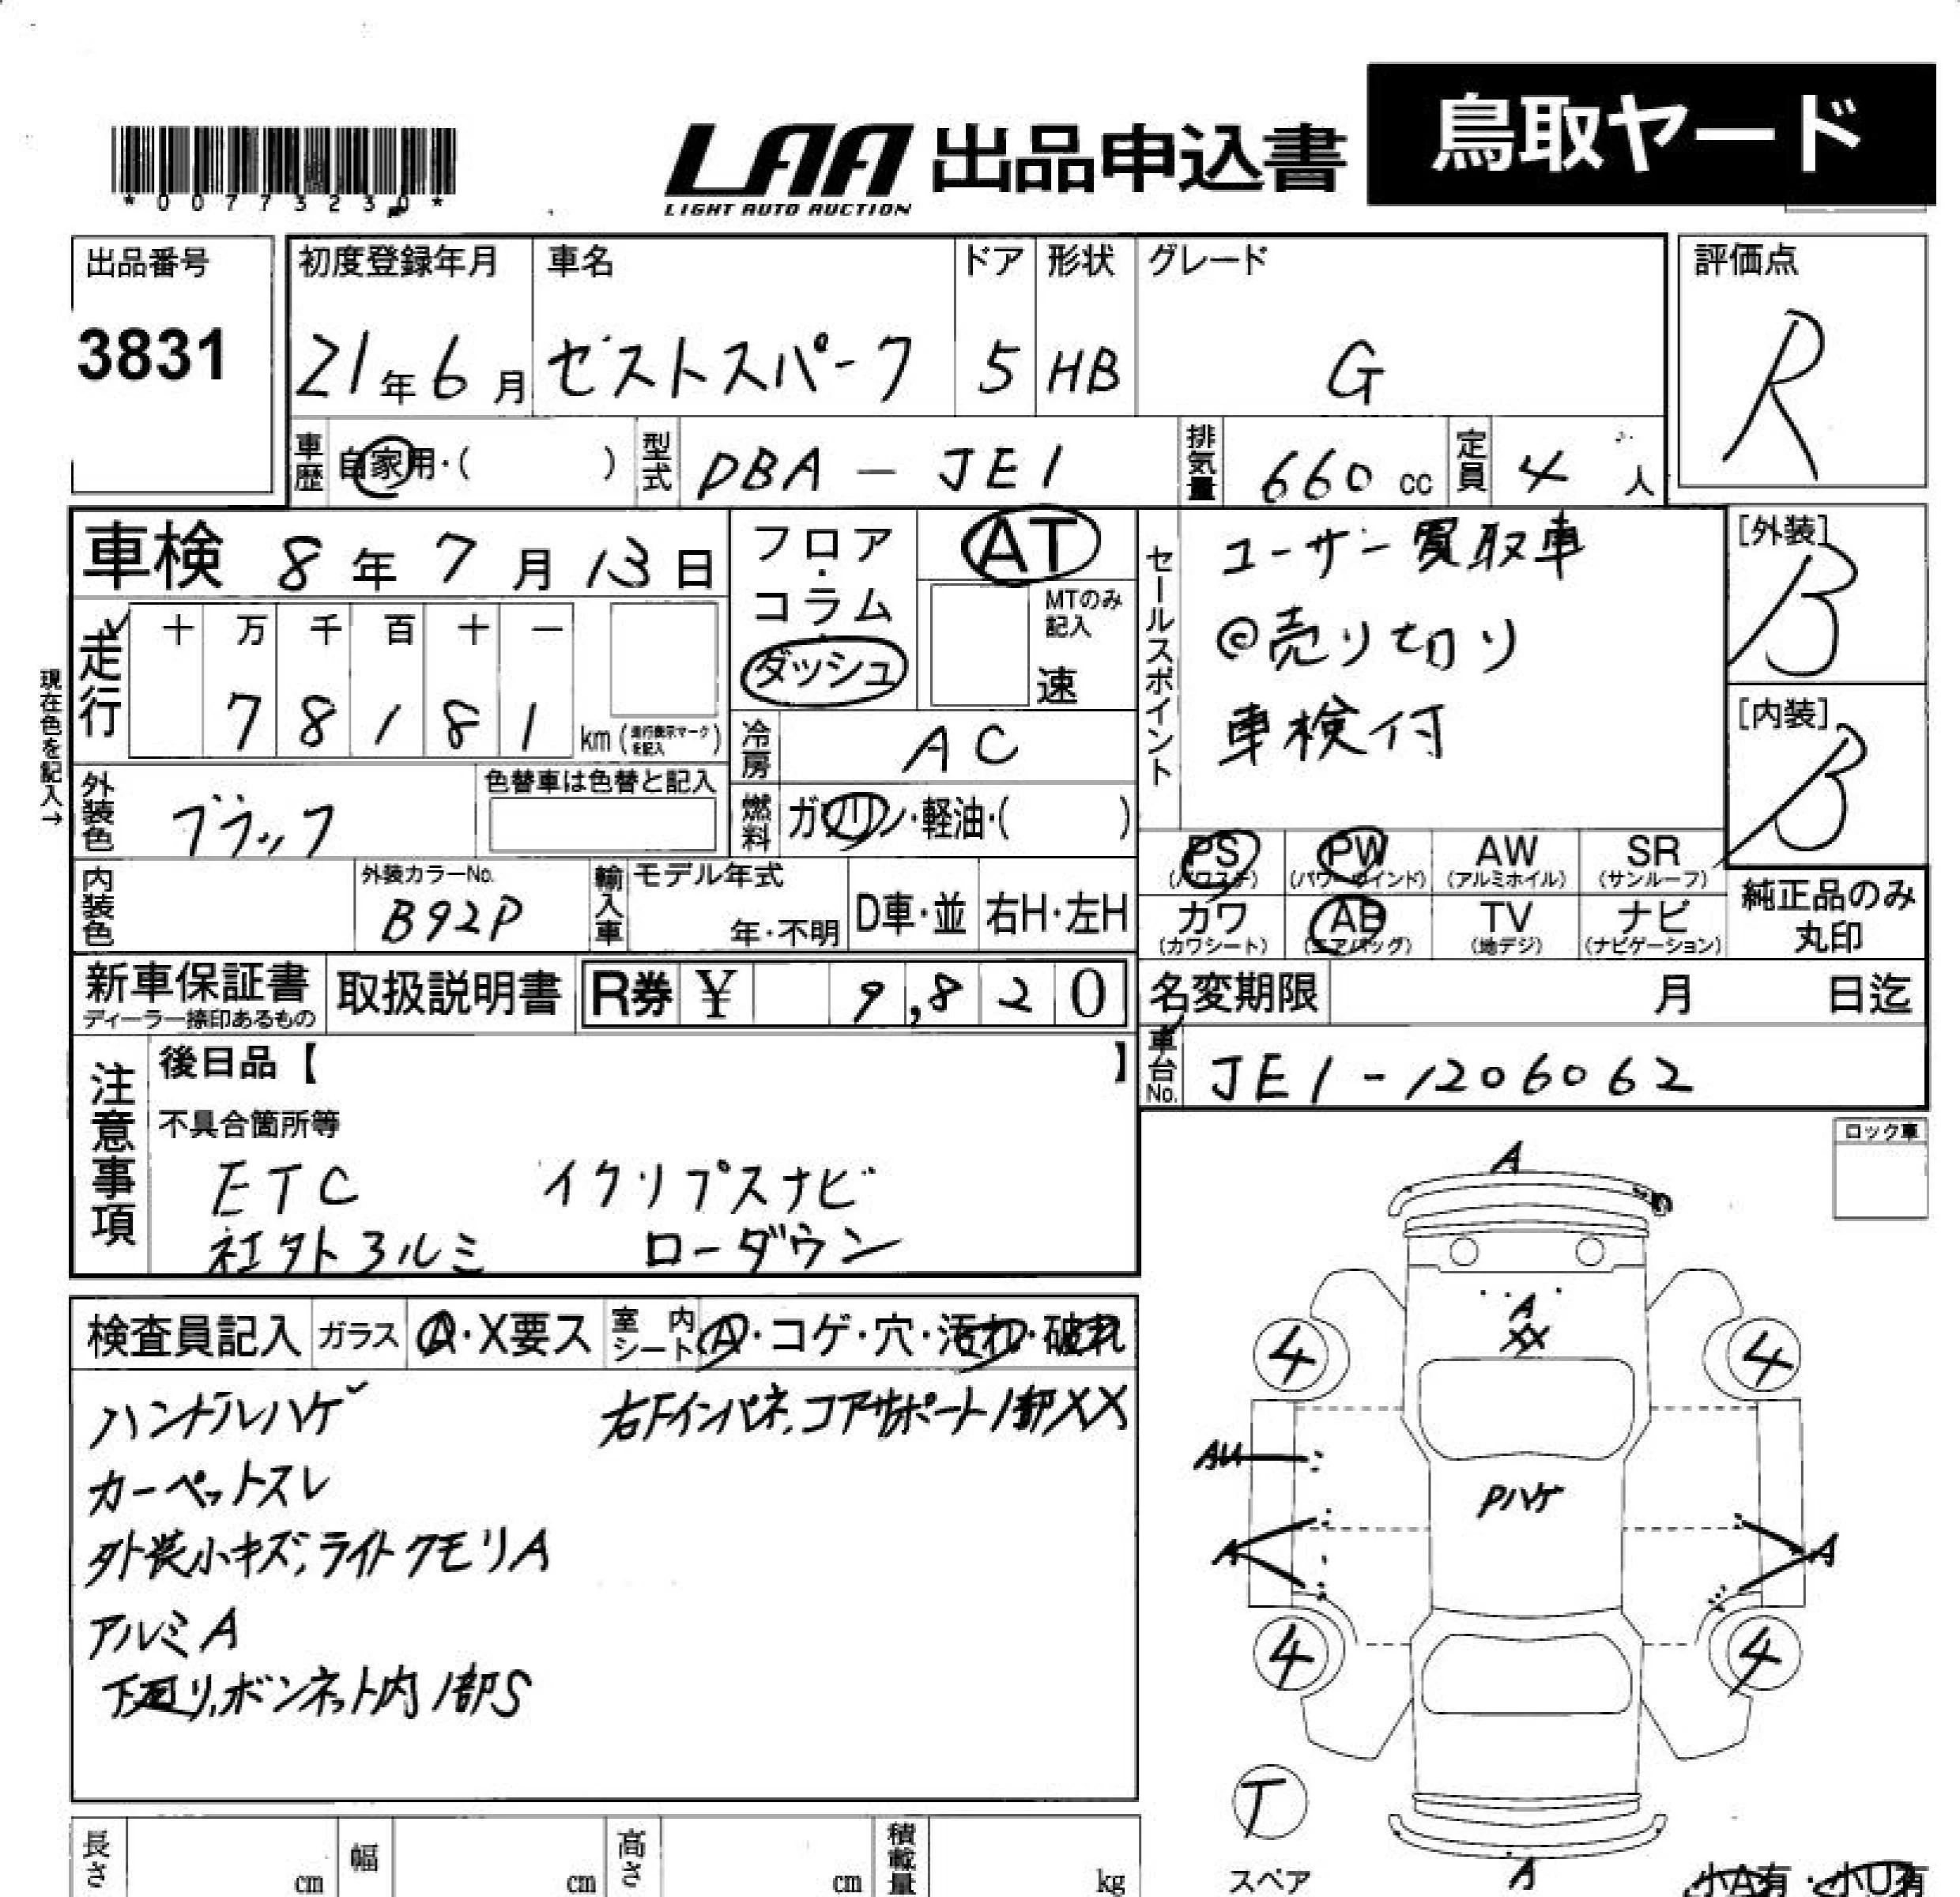 鳥取ヤード
LAA 出品申込書
LIGHT AUTO AUCTION
*00773230*
出品番号 初度登録年月 車名 ドア 形状 グレード 評価点
3831 21年6月 ゼストスパーク 5 HB G R
車歴 自家用・( ) 型式 DBA - JE1 排気量 660 cc 定員 4 人
車検 8年7月13日 フロア・コラム ダッシュ AT
MTのみ記入 速
セールスポイント ユーザー買取車
@売り切り
車検付
[外装] B
[内装] B
現在色を記入→
走行 十 万 千 百 十 一
78181 km (走行表示マークを記入)
冷房 AC
外装色 ブラック 色替車は色替と記入
燃料 ガソリン・軽油・( )
PS (パワステ) PW (パワーウインド) AW (アルミホイル) SR (サンルーフ)
カワ (カワシート) AB (エアバッグ) TV (地デジ) ナビ (ナビゲーション)
純正品のみ丸印
内装色 外装カラーNo. B92P 輸入車 モデル年式 年・不明 D車・並 右H・左H
新車保証書 ディーラー捺印あるもの 取扱説明書 R券 ¥ 9,820 名変期限 月 日迄
車台No. JE1-1206062
注意事項 後日品【 】
不具合箇所等
ETC イクリプスナビ
社外アルミ ローダウン
ロック車
検査員記入 ガラス A・X要ス 室内シート A・コゲ・穴・汚れ・破れ
ハンドルハゲ 右Fインパネ、コアサポート1部XX
カーペットスレ
外装小キズ、ライトクモリA
アルミA
下廻り、ボンネット内1部S
A
A
XX
4 4
AU
Pハゲ
A A
4 4
T
スペア
A
小A有・小U有
長さ cm 幅 cm 高さ cm 積載量 kg